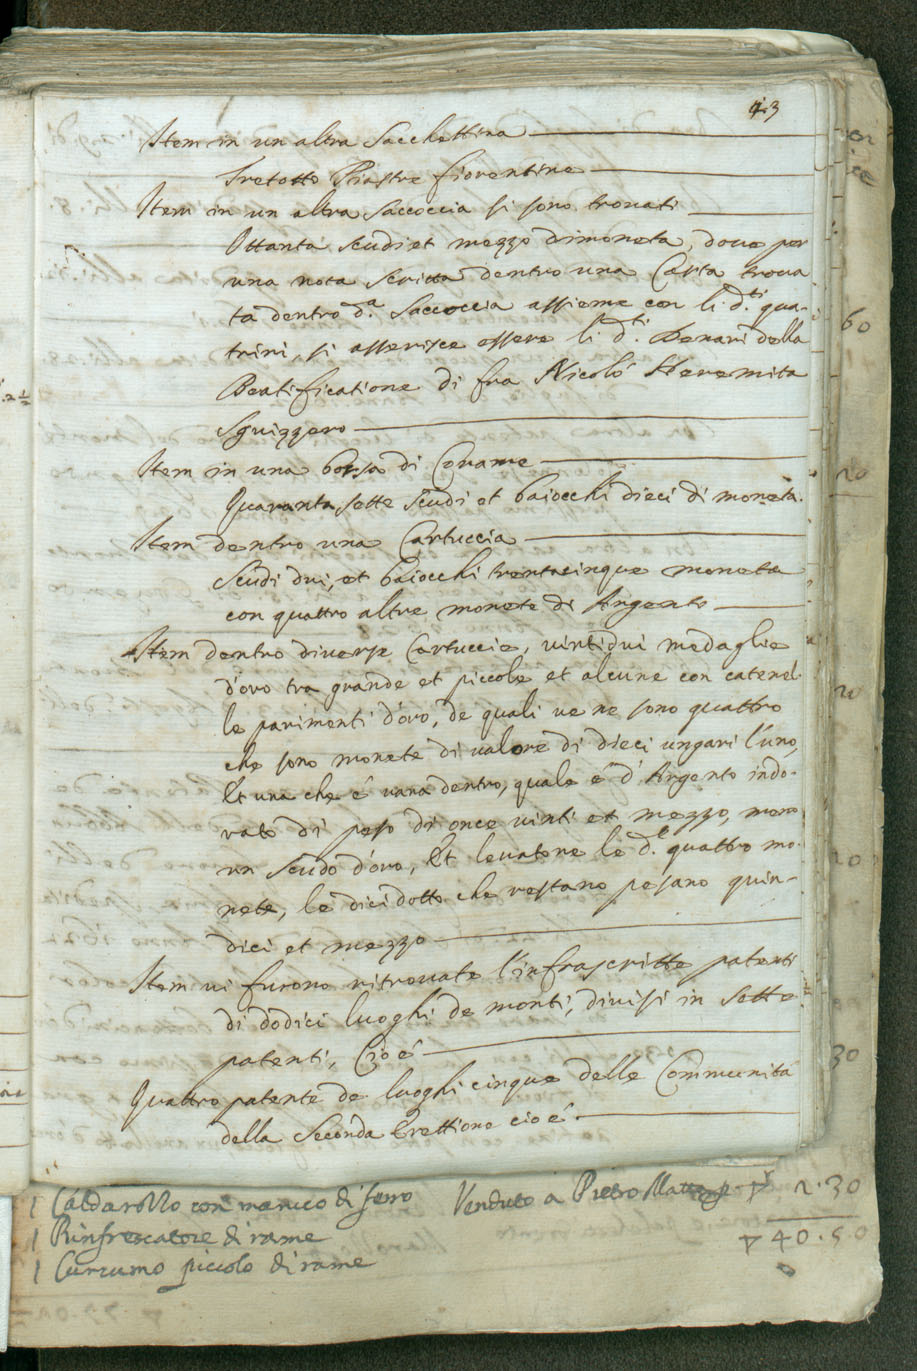 43
Item in un altra Sacchettina
Tretotto Piastre fiorentine
Item in un altra saccoccia si sono trovati
Ottanta scudi et mezzo dimoneta, doue per
una nota scritta dentro una Carta troua
ta dentro d.a Saccoccia assieme con li d.ti qua-
trini, si asserisce essere li d.ti Denari della
Beatificatione di fra Nicolò Heremita
Sguizzero
Item in una borsa di Corame
Quaranta sette scudi et baiocchi dieci di moneta.
Item dentro una Cartuccia
Scudi dui, et baiocchi trentacinque moneta
con quattro altre monete di Argento
Item dentro diverse Cartuccie, vintidui medaglie
d'oro tra grande et piccole et alcune con catenel
le parimenti d'oro, de quali ue ne sono quattro
che sono monete di valore di dieci ungari l'uno,
Et una che è vana dentro, quale è d'Argento indo-
rato di peso di once vinti et mezzo, meno
un scudo d'oro, Et levatone le d.e quattro mo-
nete, le dicidotto che restano pesano quin-
dici et mezzo
Item vi furono ritrouate l'infrascritte patenti
di dodici luoghi de monti, divisi in sette
patenti, Cio è
Quattro patente de luoghi cinque delle Communita
della Seconda Erettione cio è
1 Caldarozzo con manico di ferro Venduto a Pietro 2.30
1 Rinfrescatore di rame 40.50
1 piccolo di rame
60
20
20
20
30